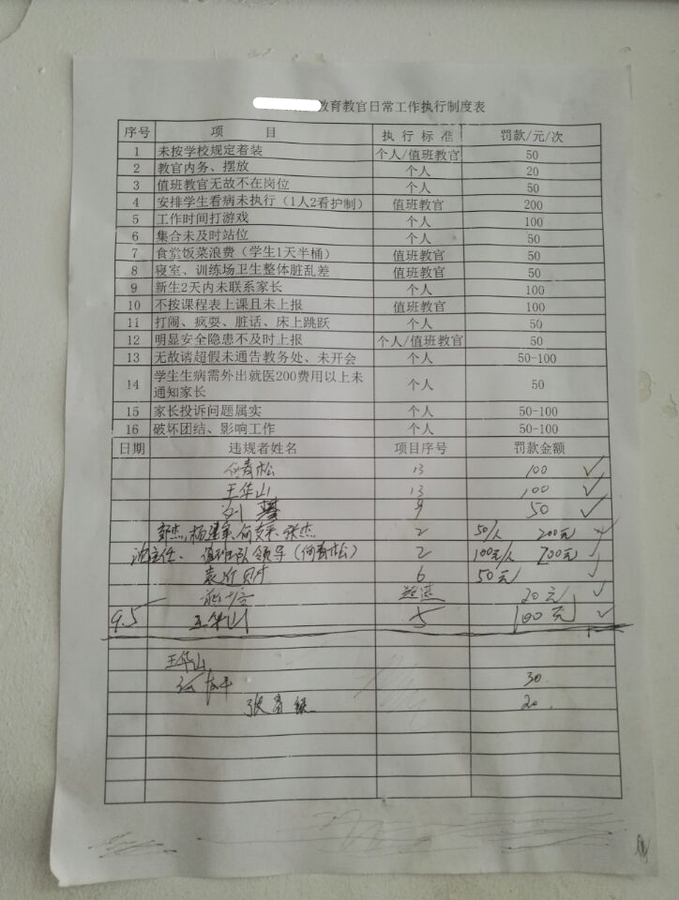 教育教官日常工作执行制度表
序号 项 目 执行标准 罚款/元/次
1 未按学校规定着装 个人/值班教官 50
2 教官内务、摆放 个人 20
3 值班教官无故不在岗位 个人 50
4 安排学生看病未执行（1人2看护制） 值班教官 200
5 工作时间打游戏 个人 100
6 集合未及时站位 个人 50
7 食堂饭菜浪费（学生1天半桶） 值班教官 50
8 寝室、训练场卫生整体脏乱差 值班教官 50
9 新生2天内未联系家长 个人 100
10 不按课程表上课且未上报 值班教官 100
11 打闹、疯耍、脏话、床上跳跃 个人 50
12 明显安全隐患不及时上报 个人/值班教官 50
13 无故请超假未通告教务处、未开会 个人 50-100
14 学生生病需外出就医200费用以上未 个人 50
通知家长
15 家长投诉问题属实 个人 50-100
16 破坏团结、影响工作 个人 50-100
日期 违规者姓名 项目序号 罚款金额
何青松 13 100 ✓
王华山 13 100 ✓
刘 9 50 ✓
2 50/人 200元
沈主任、值班队领导（何青松） 2 100元/人 200元
6 50元 ✓
20元 ✓
9.5 王华山 5 100元 ✓
王华山
30
张 20